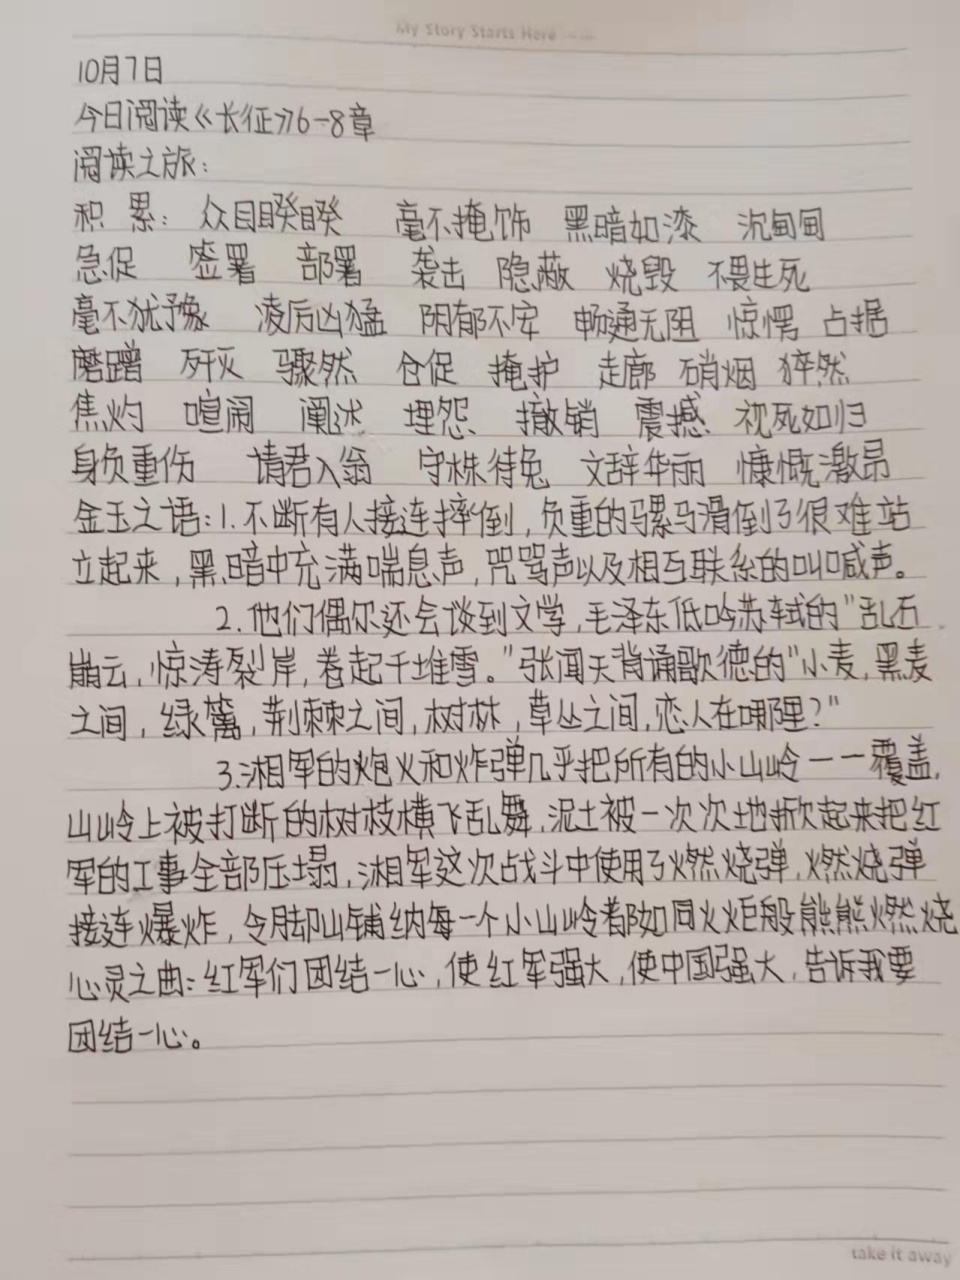 My Story Starts Here
10月7日
今日阅读《长征》6-8章
阅读之旅：
积 累：众目睽睽 毫不掩饰 黑暗如漆 沉甸甸
急促 签署 部署 袭击 隐蔽 烧毁 不畏生死
毫不犹豫 凌厉凶猛 阴郁不安 畅通无阻 惊愕 占据
磨蹭 歼灭 骤然 仓促 掩护 走廊 硝烟 猝然
焦灼 喧闹 阐述 埋怨 撤销 震撼 视死如归
身负重伤 请君入瓮 守株待兔 文辞华丽 慷慨激昂
金玉之语：1.不断有人接连摔倒，负重的骡马滑倒了很难站
立起来，黑暗中充满喘息声，咒骂声以及相互联系的叫喊声。
2.他们偶尔还会谈到文学，毛泽东低吟苏轼的"乱石
崩云，惊涛裂岸，卷起千堆雪。"张闻天背诵歌德的"小麦，黑麦
之间，绿篱，荆棘之间，树林，草丛之间，恋人在哪里？"
3.湘军的炮火和炸弹几乎把所有的小山岭一一覆盖，
山岭上被打断的树枝横飞乱舞，泥土被一次次地掀起来把红
军的工事全部压塌，湘军这次战斗中使用了燃烧弹，燃烧弹
接连爆炸，令脚山铺纳每一个小山岭都如同火炬般熊熊燃烧
心灵之曲：红军们团结一心，使红军强大，使中国强大，告诉我要
团结一心。
take it away